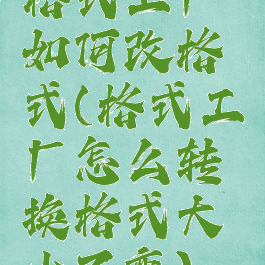 格式工厂
如何改格
式(格式工
厂怎么转
换格式大
小不变)